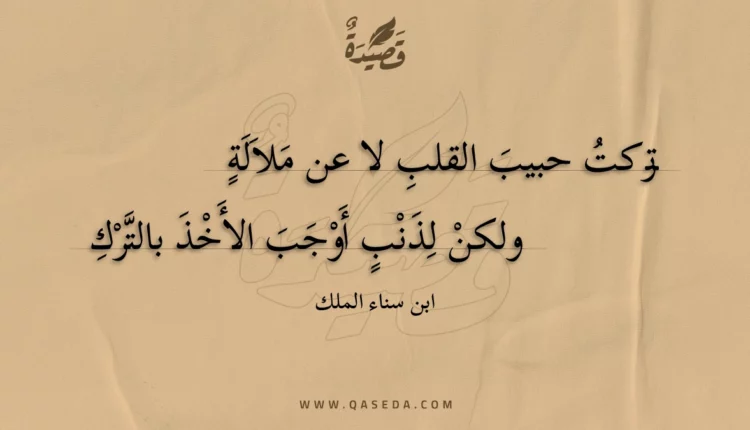 قَصِيْدَةٌ
تركتُ حبيبَ القلبِ لا عن مَلاَلَةٍ
ولكنْ لِذَنْبٍ أَوْجَبَ الأَخْذَ بالتَّرْكِ
ابن سناء الملك
WWW.QASEDA.COM